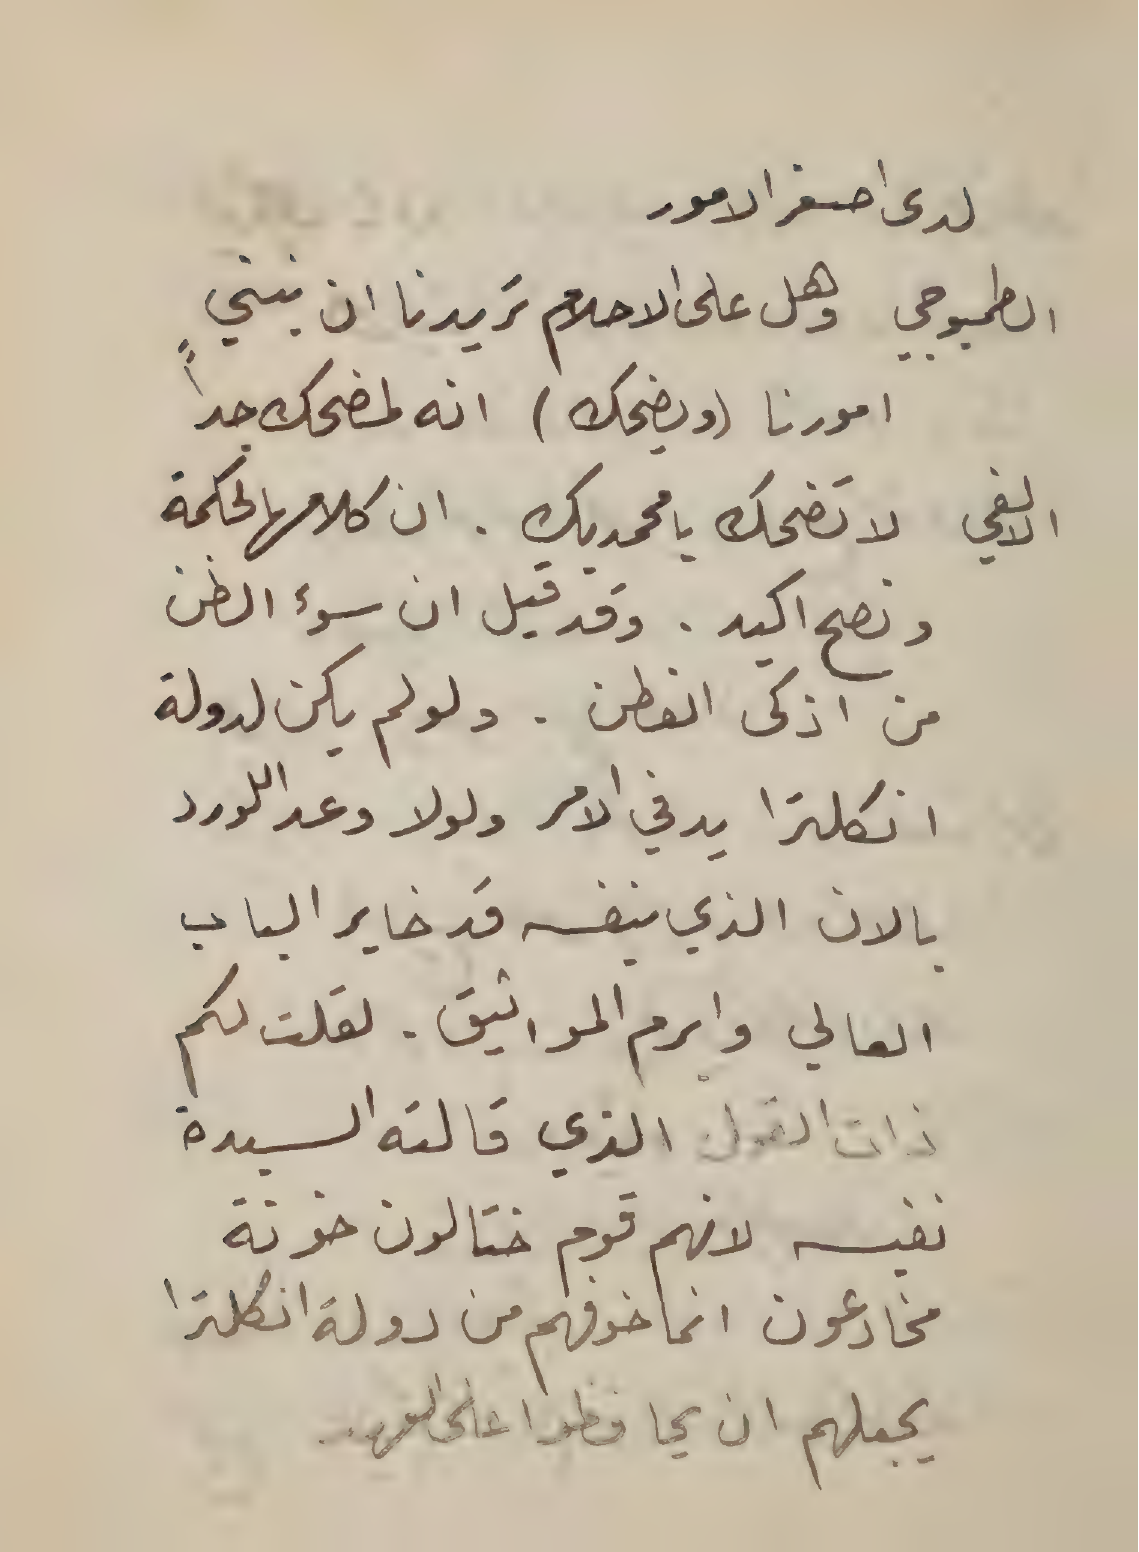 لدى اصغر الامور
الطمبوجي وهل على الاحلام تريدنا ان نبتني
امورنا (ويضحك) انه لمضحك جداً
الالفي لا تضحك يا محمد بك . ان كلامها لحكمة
ونصح اكيد . وقد قيل ان سوء الظن
من اذكى الفطن . ولو لم يكن لدولة
انكلترا يد في الامر ولولا وعد اللورد
بالان الذي بنفسه قد خابر الباب
العالي وابرم المواثيق . لقلت لكم
ذات القول الذي قالته السيدة
نفيسه لانهم قوم ختالون خونة
مخادعون انما خوفهم من دولة انكلترا
يجعلهم ان يحافظوا على العهود